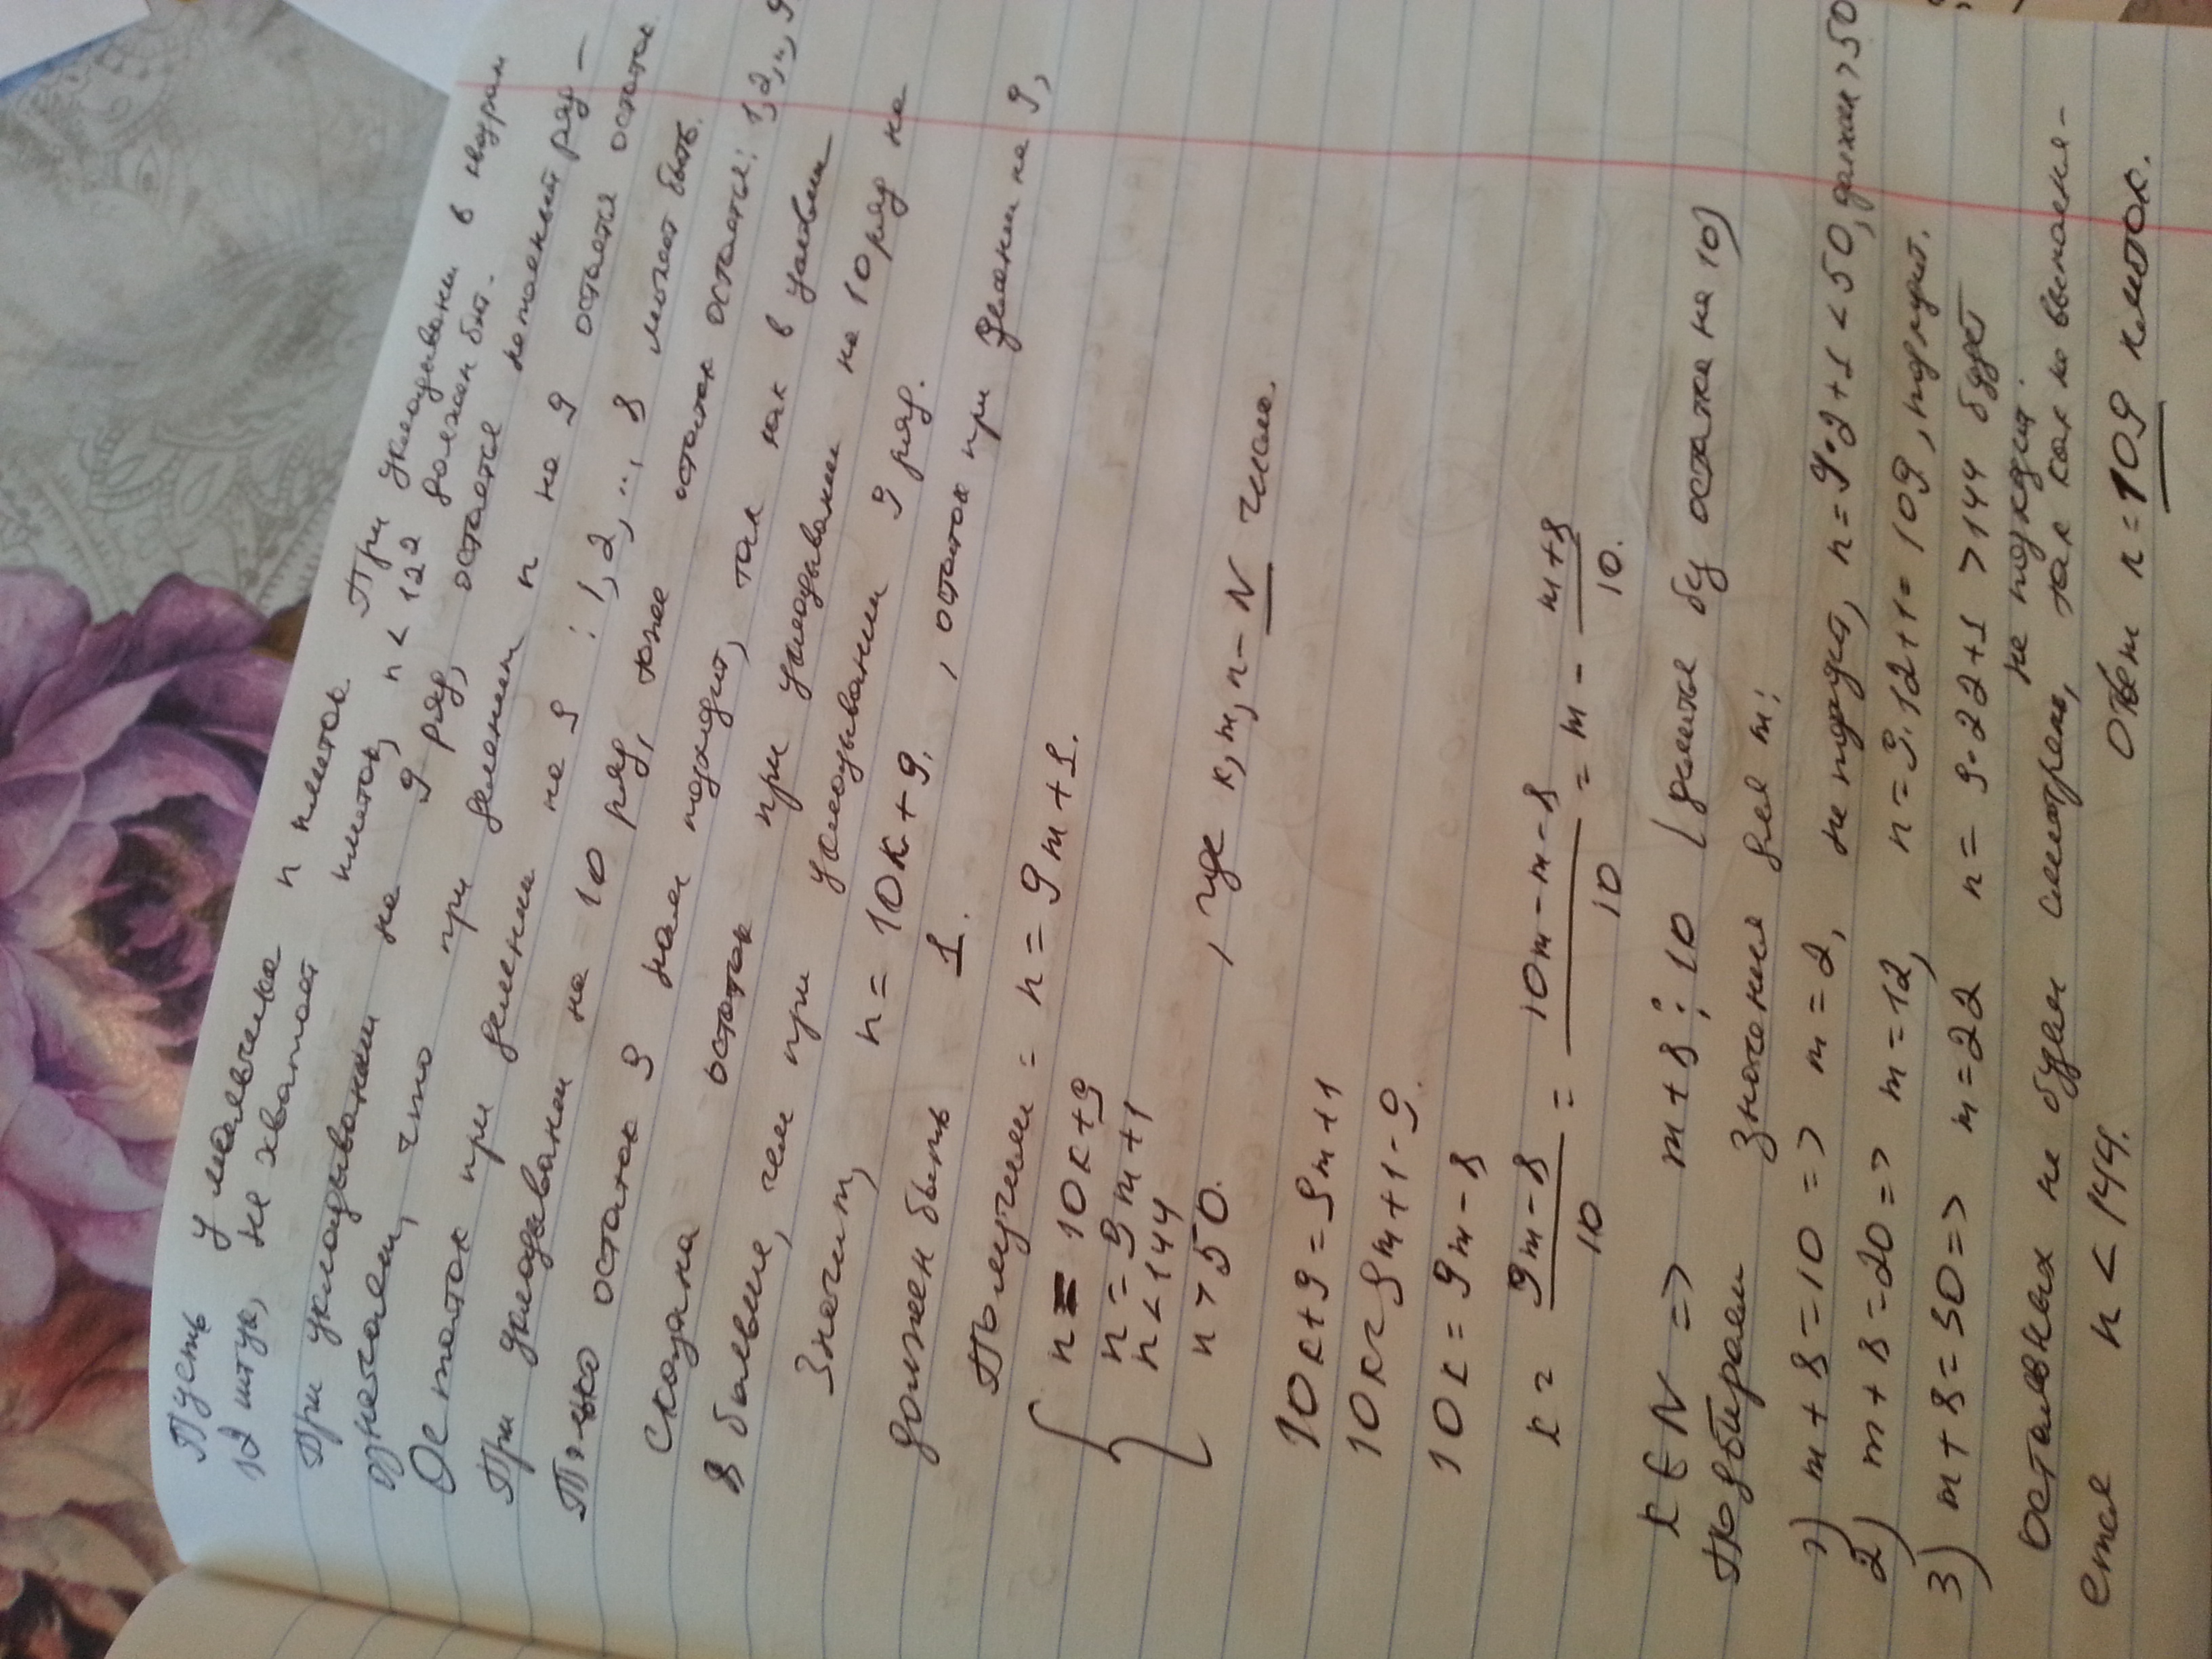 Пусть у мальчика n плиток. При укладывани в квадрат
12 штук, не хватой плиток, n < 122 должен быт.
При укладывании на 9 ряд, остается неполный ряд –
означает, что при делении n на 9 остается остаток
Остаток при делении на 9 : 1, 2, .., 8 может быть.
При укладовании на 10 ряд, тоже остаток остается: 1, 2, .., 9
Только остаток 9 нам подходит, так как в условии
сказана остаток при укладывании на 10 ряд на
8 больше, чем при укладывании 9 ряд.
Значит, n = 10k + 9. , остаток при делении на 9,
должен быть 1.
Получим: n = 9m + 1.
n = 10k + 9
n = 9m + 1
n < 144
n > 50. , где k, m, n – N числа.
10k + 9 = 9m + 1
10k = 9m + 1 - 9.
10k = 9m - 8
k = 9m - 8 / 10 = 10m - m - 8 / 10 = m - m + 8 / 10.
k ∈ N => m + 8 ⋮ 10 (делится бу остатка на 10)
Подбираем значения для m:
1) m + 8 = 10 => m = 2, не подходит, n = 9·2 + 1 < 50, должен > 50
2) m + 8 = 20 => m = 12, n = 9·12 + 1 = 109, подходит.
3) m + 8 = 30 => m = 22 n = 9·22 + 1 > 144 будет
не подходит.
Остальных не будем смотреть, так как не выполня-
ется n < 144. Ответ n = 109 плиток.